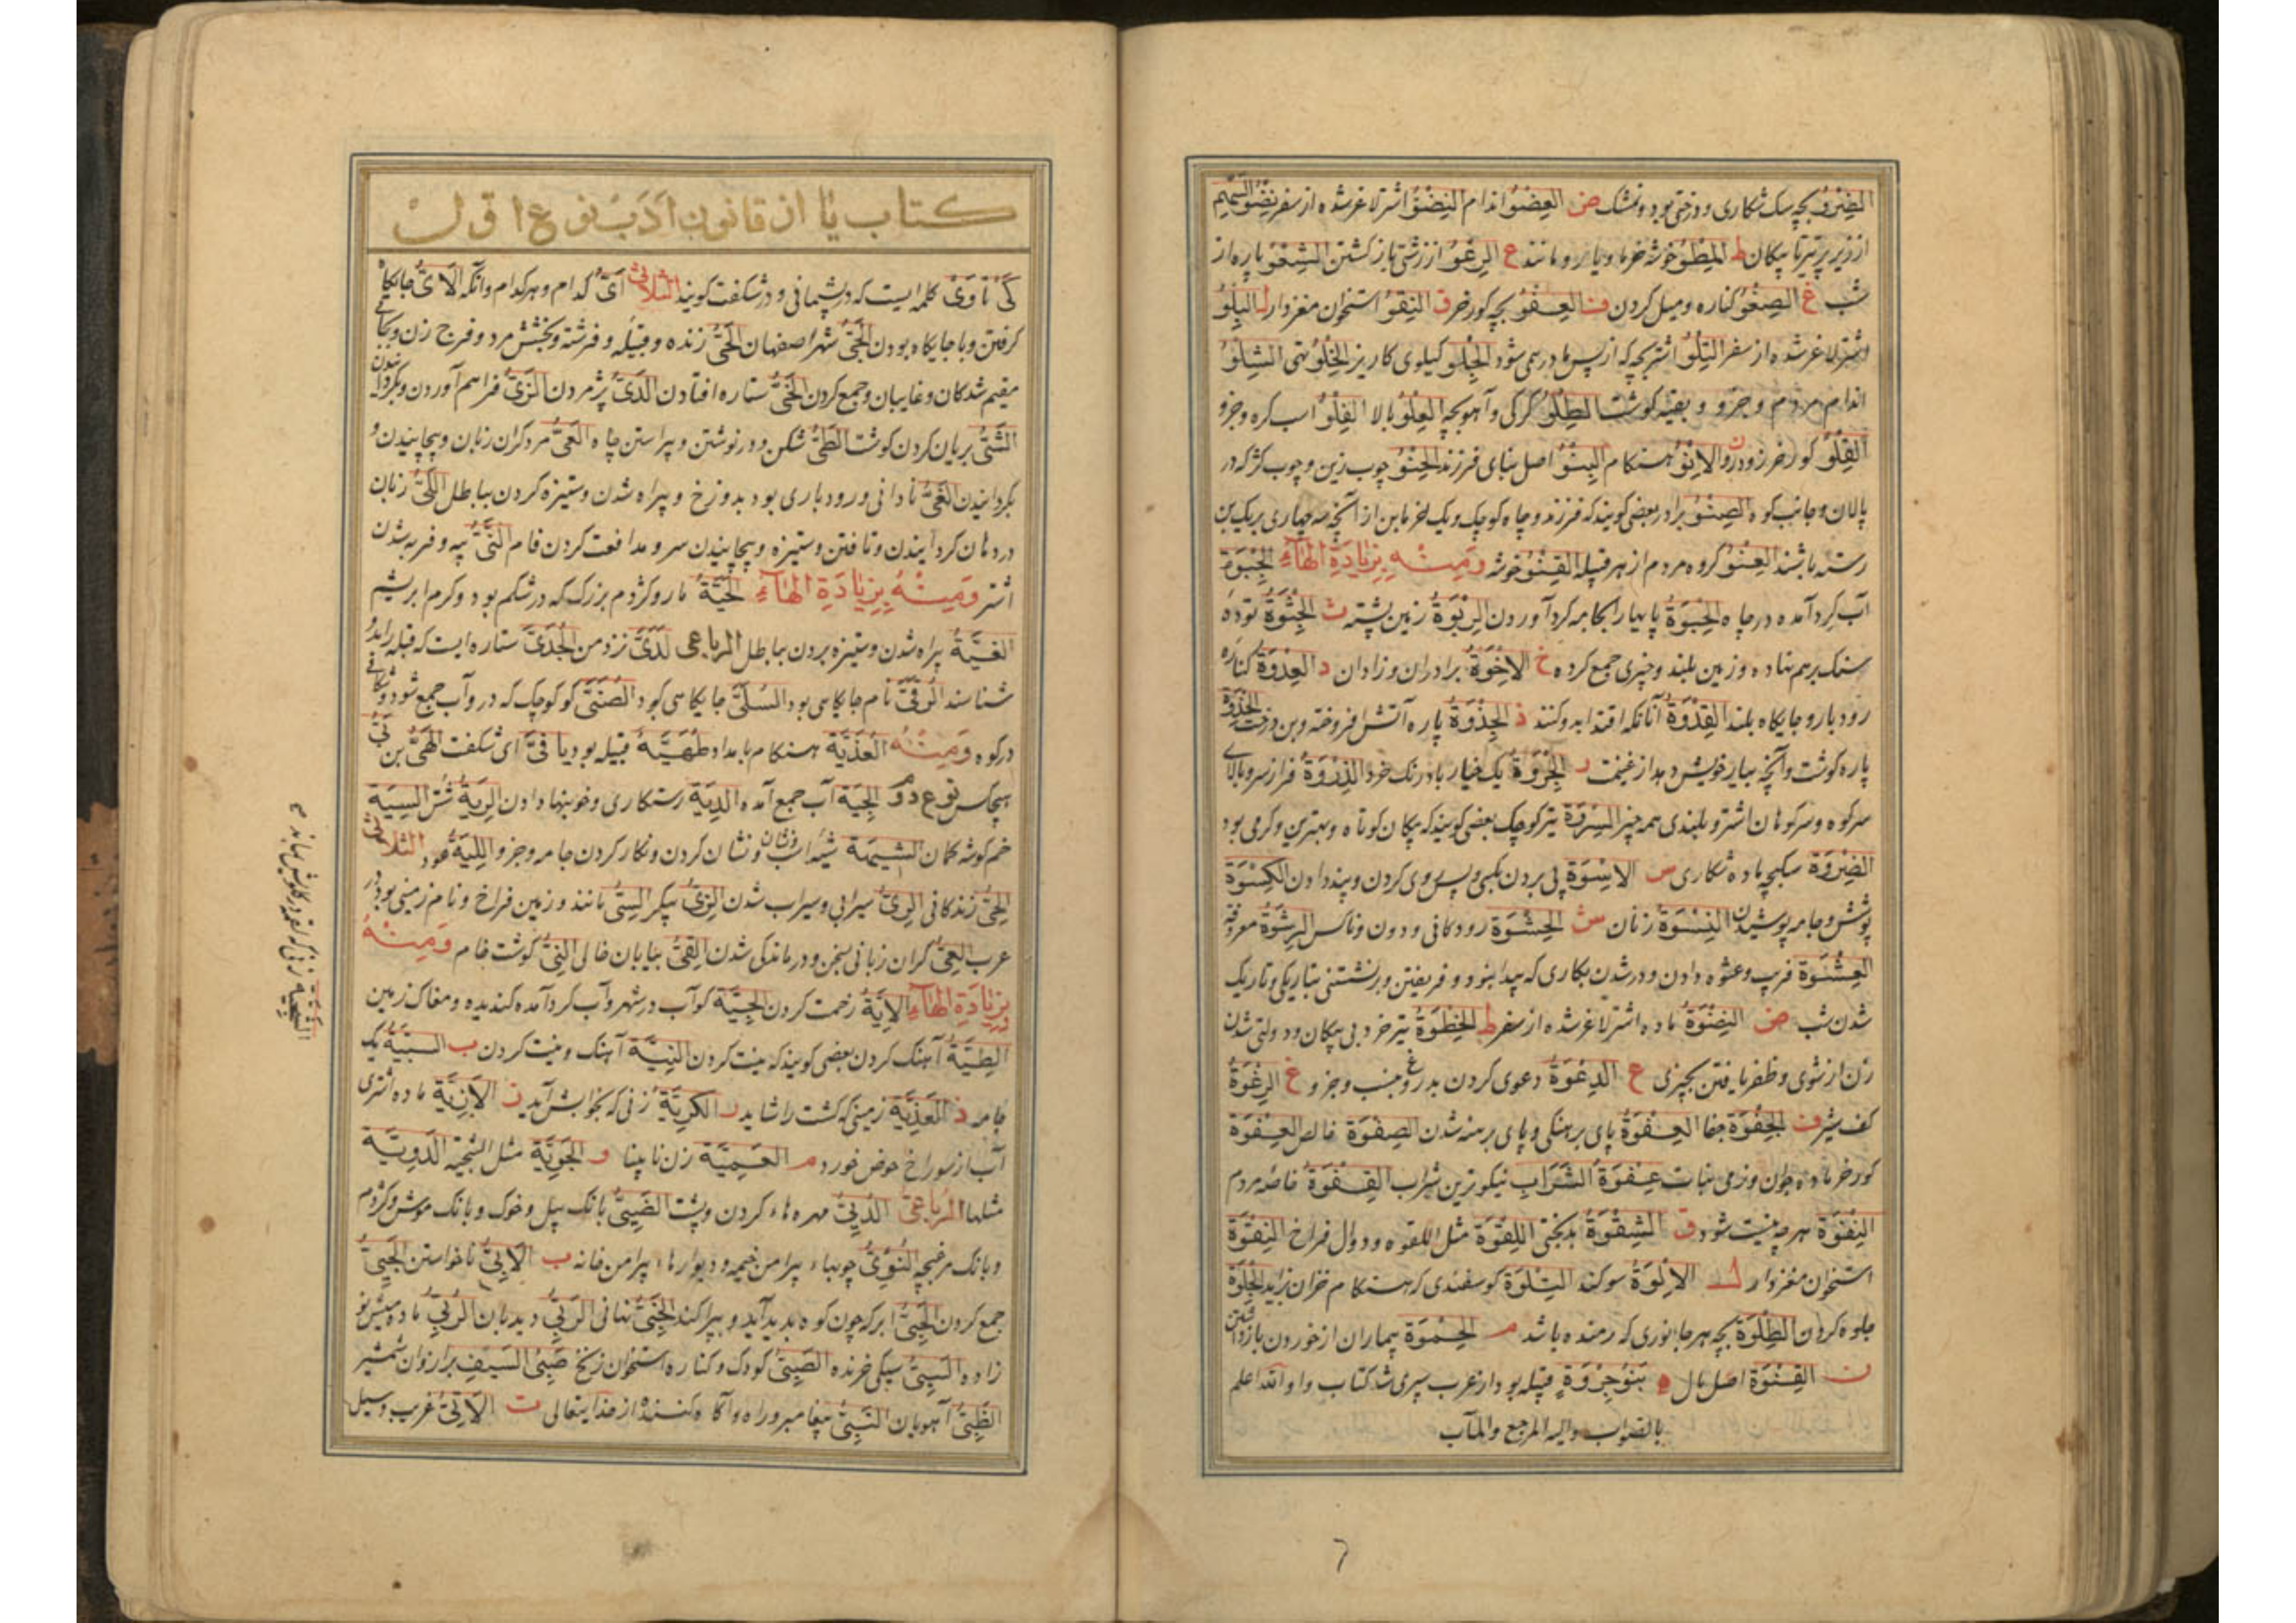 الضِرْوُ بچه سک شکاری و درختی بود و خشک ض العِضْوُ اندام النِضْوُ اشتر لاغر شده از سفر نِضْوُ السَّهْمِ
از زیر پر تیر تا پیکان ط المِطْوُ خوشه خرما و یار و مانند ع الرِعْوُ از زشتی باز کشتن الشِعْوُ پاره از
شب غ الصِغْوُ کناره و میل کردن ف العِفْوُ بچه کور خر ق النِقْوُ استخوان مغزدار ل البِلْوُ
اشتر لاغر شده از سفر التِلْوُ اشتر بچه که از پس مادر می شود الجِلْو کیلوی کاریز الخِلْوُ تهی الشِلْوُ
اندام مردم و جزو و بقیه کوشت الطِلْوُ کرکی و آهو بچه العِلْوُ بالا الفِلْوُ اسب کره و جزو
القِلْوُ کور خر زود رو ن الاِنْوُ هنکام البِنْوُ اصل بنای فرزند الحِنْوُ چوب زین و چوب کژ که در
پالان و جانب کوه الصِنْوُ برادر بعضی کویند که فرزند و چاه کوچک و یک خرما بن از آنچه سه چهاری بر یک بن
رسته باشند العِنْوُ کروه مردم از هر قبیله القِنْوُ خوشه وَمِنْهُ بِزِيَادَةِ الهَاءِ الجِبْوَة
آب کرد آمده در چاه الحِبْوَةُ پایها را بجامه کرد آوردن الرِبْوَةُ زمین پشته ث الجِثْوَةُ توده
سنک برهم نهاده و زمین بلند و چیزی جمع کرده خ الاِخْوَةُ برادران و زادان د العِدْوَةُ کناره
رودبار و جایکاه بلند القِدْوَةُ آنانکه اقتدا بدو کنند ذ الجِذْوَةُ پاره آتش افروخته و بن درخت الحِذْوَةُ
پاره کوشت و آنچه بیار خویش دهد از غنیمت ر الجِرْوَةُ یک خیار بادرنک خرد الذِرْوَةُ فراز سر و بالای
سر کوه و سر کوهان اشتر و بلندی همه چیز السِرْوَة تیر کوچک بعضی کویند که پیکان کوتاه و بهترین و کرمی بود
الضِرْوَةُ سکبچه ماده شکاری س الاِسْوَةُ پی بردن بکسی و پس روی کردن و پند دادن الکِسْوَةُ
پوشش و جامه پوشیدن النِسْوَةُ زنان ش الحِشْوَةُ رودکانی و دون و ناکس الرِشْوَةُ معروفه
العِشْوَةُ فریب و عشوه دادن و در شدن بکاری که پیدا نبود و فریفتن و برنشستنی بتاریکی و تاریک
شدن شب ض النِضْوَةُ ماده اشتر لاغر شده از سفر ط الخِطْوَةُ تیر خرد بی پیکان و دولتی شدن
زن از شوی و ظفر نایافتن بچیزی ع الدِعْوَةُ دعوی کردن بدروغ و بنسب و جزو غ الرِغْوَةُ
کف شیر ف الجِفْوَةُ جفا الحِفْوَةُ پای برهنکی و پای برهنه شدن الصِفْوَةُ خالص العِفْوَةُ
کور خر ماده جوان و نرمی نبات عِفْوَةُ الشَرَابِ نیکوترین شراب القِفْوَةُ خاصه مردم
النِفْوَةُ هرچه نیست شود ق الشِقْوَةُ بدبختی اللِقْوَةُ مثل اللقوه و دوال فراخ النِقْوَةُ
استخوان مغزدار ل الاِلْوَةُ سوکند التِلْوَةُ کوسفندی که هنکام خزان زاید الجِلْوَةُ
جلوه کردن الطِلْوَةُ بچه هر جانوری که رمنده باشد م الحِمْوَةُ بیماران از خوردن باز داشتن
ن القِنْوَةُ اصل مال ه بَنُو جِرْوَةٍ قبیله بود از عرب سپری شد کتاب واو والله اعلم
بالصواب والیه المرجع والمآب
کتاب یا از قانون ادب نوع اول
کَیْ تا وَیْ کلمه ایست که در پشیمانی و در شکفت کویند الثلاثی اَیُّ کدام و هر کدام و آنکه الاَیُّ جایکاه
کرفتن و با جایکاه بودن الجَیُّ شهر اصفهان الحَیُّ زنده و قبیله و فرشته و بخشش مرد و فرج زن و بجای
مقیم شدکان و غایبان و جمع کردن الخَیُّ ستاره افتادن الذَیُّ پژمردن الزَیُّ فراهم آوردن و بکردانیدن
الشَیُّ بریان کردن کوشت الطَیُّ شکن و در نوشتن و پیراستن چاه العَیُّ مرد کران زبان و پیچانیدن و
بکردانیدن الغَیُّ نادانی و رودباری بود بدوزخ و بیراه شدن و ستیزه کردن بباطل اللَیُّ زبان
در دهان کردانیدن و تافتن و ستیزه و پیچانیدن سر و مدافعت کردن فام النَیُّ پیه و فربه شدن
اشتر وَمِنْهُ بِزِيَادَةِ الهَاءِ الحَیَّةُ مار و کژدم بزرک که در شکم بود و کرم ابریشم
الغَیَّةُ بیراه شدن و ستیزه بردن بباطل الرباعی لَدَیَّ نزد من الجُدَیَّ ستاره ایست که قبله را بدو
شناسند الوُقَیُّ نام جایکاهی بود السُلَیُّ جایکاهی بود الصُنَیُّ کو کوچک که در و آب جمع شود و شکافی
در کوه وَمِنْهُ العُذَیَّة هنکام بامداد طُهَیَّةُ قبیله بود یا فَیَّ ای شکفت الهَیُّ بن بَیّ
هیچکس نوع دوم الجِیَة آب جمع آمده الدِیَة رستکاری و خونبها دادن الرِیَةُ شش السِیَة
خم کوشه کمان الشِیَة نشان کردن و نکار کردن جامه و جزو اللِیَةُ عود الثلاثی
الحِیُّ زندکانی الرِیُّ سیرابی و سیراب شدن الزِیُّ پیکر السِیُّ مانند و زمین فراخ و نام زمینی بود در
عرب العِیُّ کران زبانی بسخن و درماندکی شدن القِیُّ بیابان خالی النِیُّ کوشت خام وَمِنْهُ
بِزِيَادَةِ الهَاءِ الاِیَّةُ رحمت کردن الجِیَّة کو آب در شهر و آب کرد آمده کندیده و مغاک زمین
الطِیَّةُ آهنک کردن بعضی کویند که نیت کردن النِیَّة آهنک و نیت کردن ب السَبِیَّةُ یک
جامه ذ العَذِیَّة زمینی که کشت را شاید ر الکَرِیَّةُ زنی که بخوابش آید ز الاَزِیَّة ماده اشتری
آب از سوراخ حوض خورد م العَمِیَّة زن نابینا و الجَوِیَّة مثل الشجیة الدَوِیَّة
مثلها الرباعی الدُئِیُّ مهره هاء کردن و پشت الضَئِیُّ بانک پیل و خوک و بانک موش و کژدم
و بانک مرغبچه النُؤِیُّ جویهاء پیرامن خیمه و دیوارهاء پیرامن خانه ب الاَبِیُّ ناخواستن الجَبِیُّ
جمع کردن الحَبِیُّ ابر که چون کوه بدید آید و بپراکند الخَبِیُّ نهانی الرَبِیُّ دیدبان الرُبِیُّ ماده میش نو
زاده السَبِیُّ سیکی خرنده الصَبِیُّ کودک و کناره استخوان زنخ صَبِیُّ السَیْفِ برازوان شمشیر
الظُبِیُّ آهوبان النَبِیُّ پیغامبر و راه و آکاه کننده از خدایتعالی ت الاَتِیُّ غریب و سیل
الشجیة زنی که لقمه در کلوش بماند